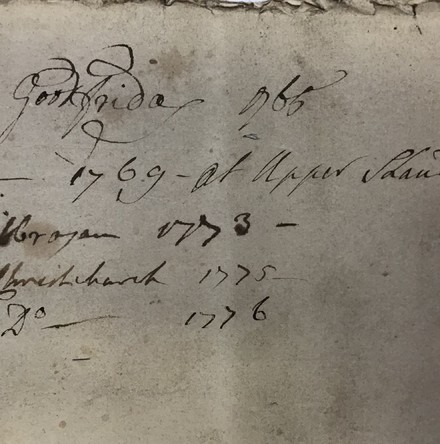 Good friday 1765
— 1769 - at Upper
1773 —
Christchurch 1775 —
Do — 1776